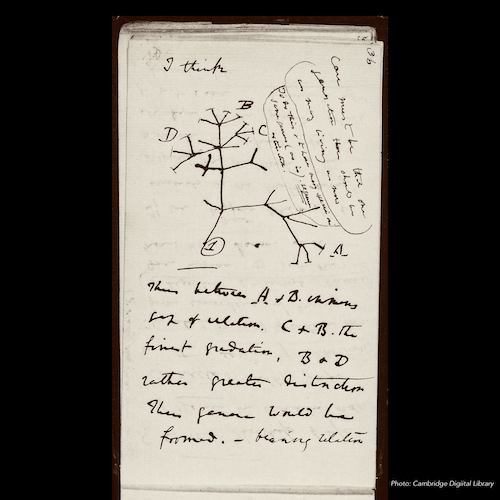 36
I think
Case must be that one
generation then should be
as many living as now
To do this & to have many species in
same genus (as is). requires
extinction
B
D
C
1
A
Thus between A & B. immense
gap of relation. C & B. the
finest gradation, B & D
rather greater distinction
Thus genera would be
formed. – bearing relation
Photo: Cambridge Digiital Library